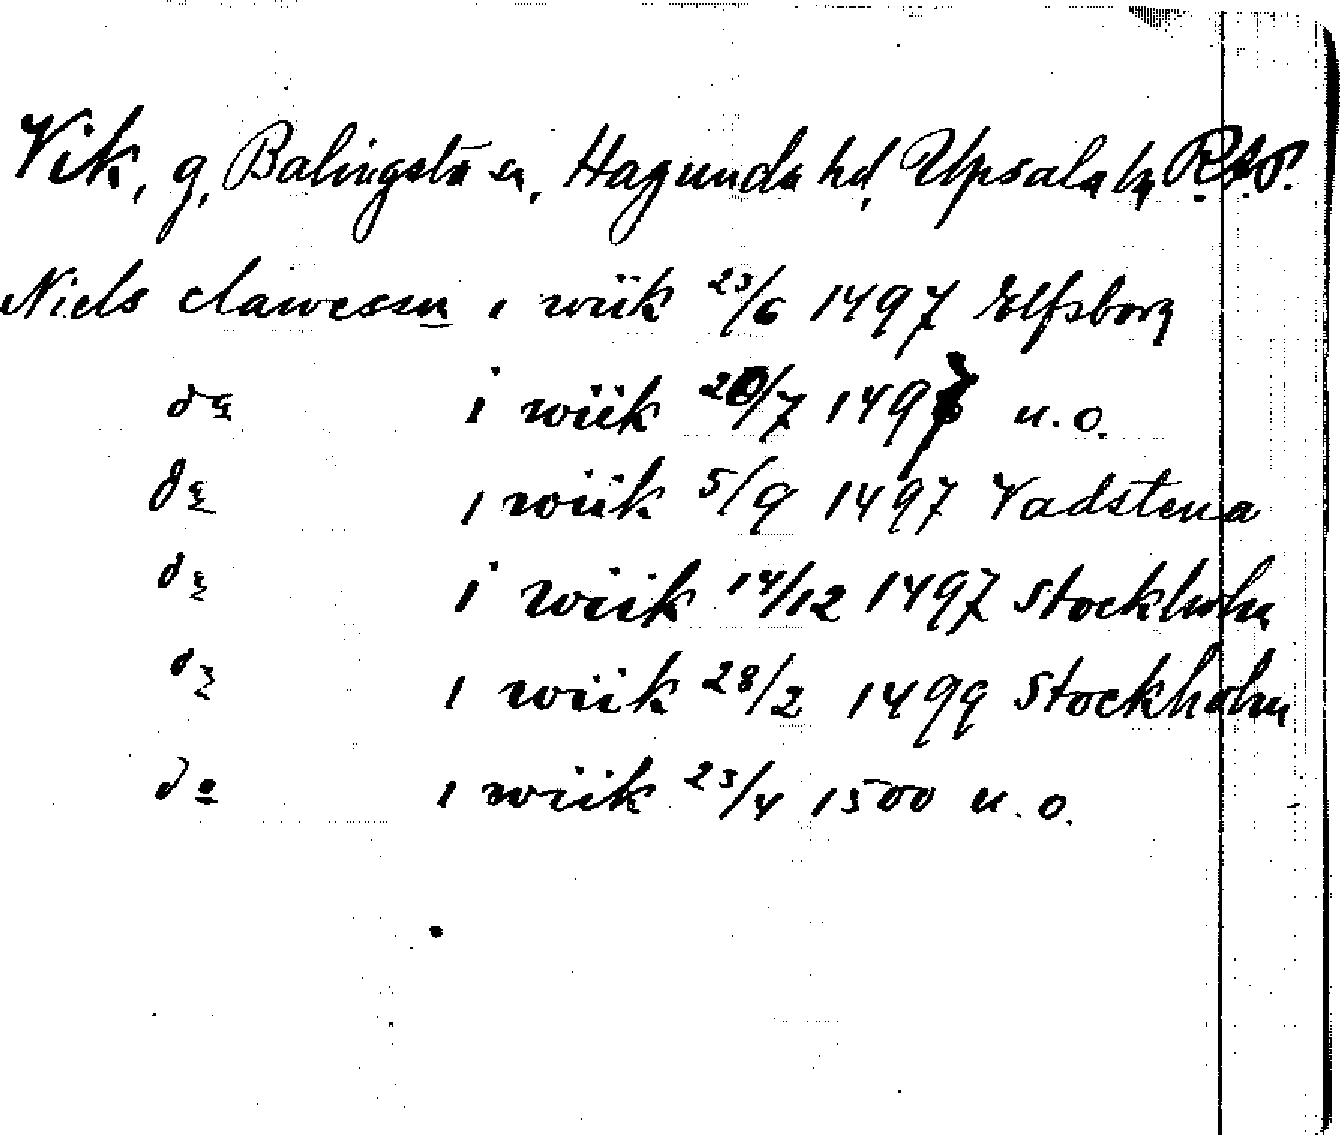 Vik, g, Balingsta sn, Hagunda hd, Upsala ln R.A.P.
Niels clawessn i wiik 23/6 1497 Elfsborg
do i wiik 20/7 1497 u.o.
do i wiik 5/9 1497 Vadstena
do i wiik 14/12 1497 Stockholm
do i wiik 28/2 1499 Stockholm
do i wiik 23/4 1500 u.o.